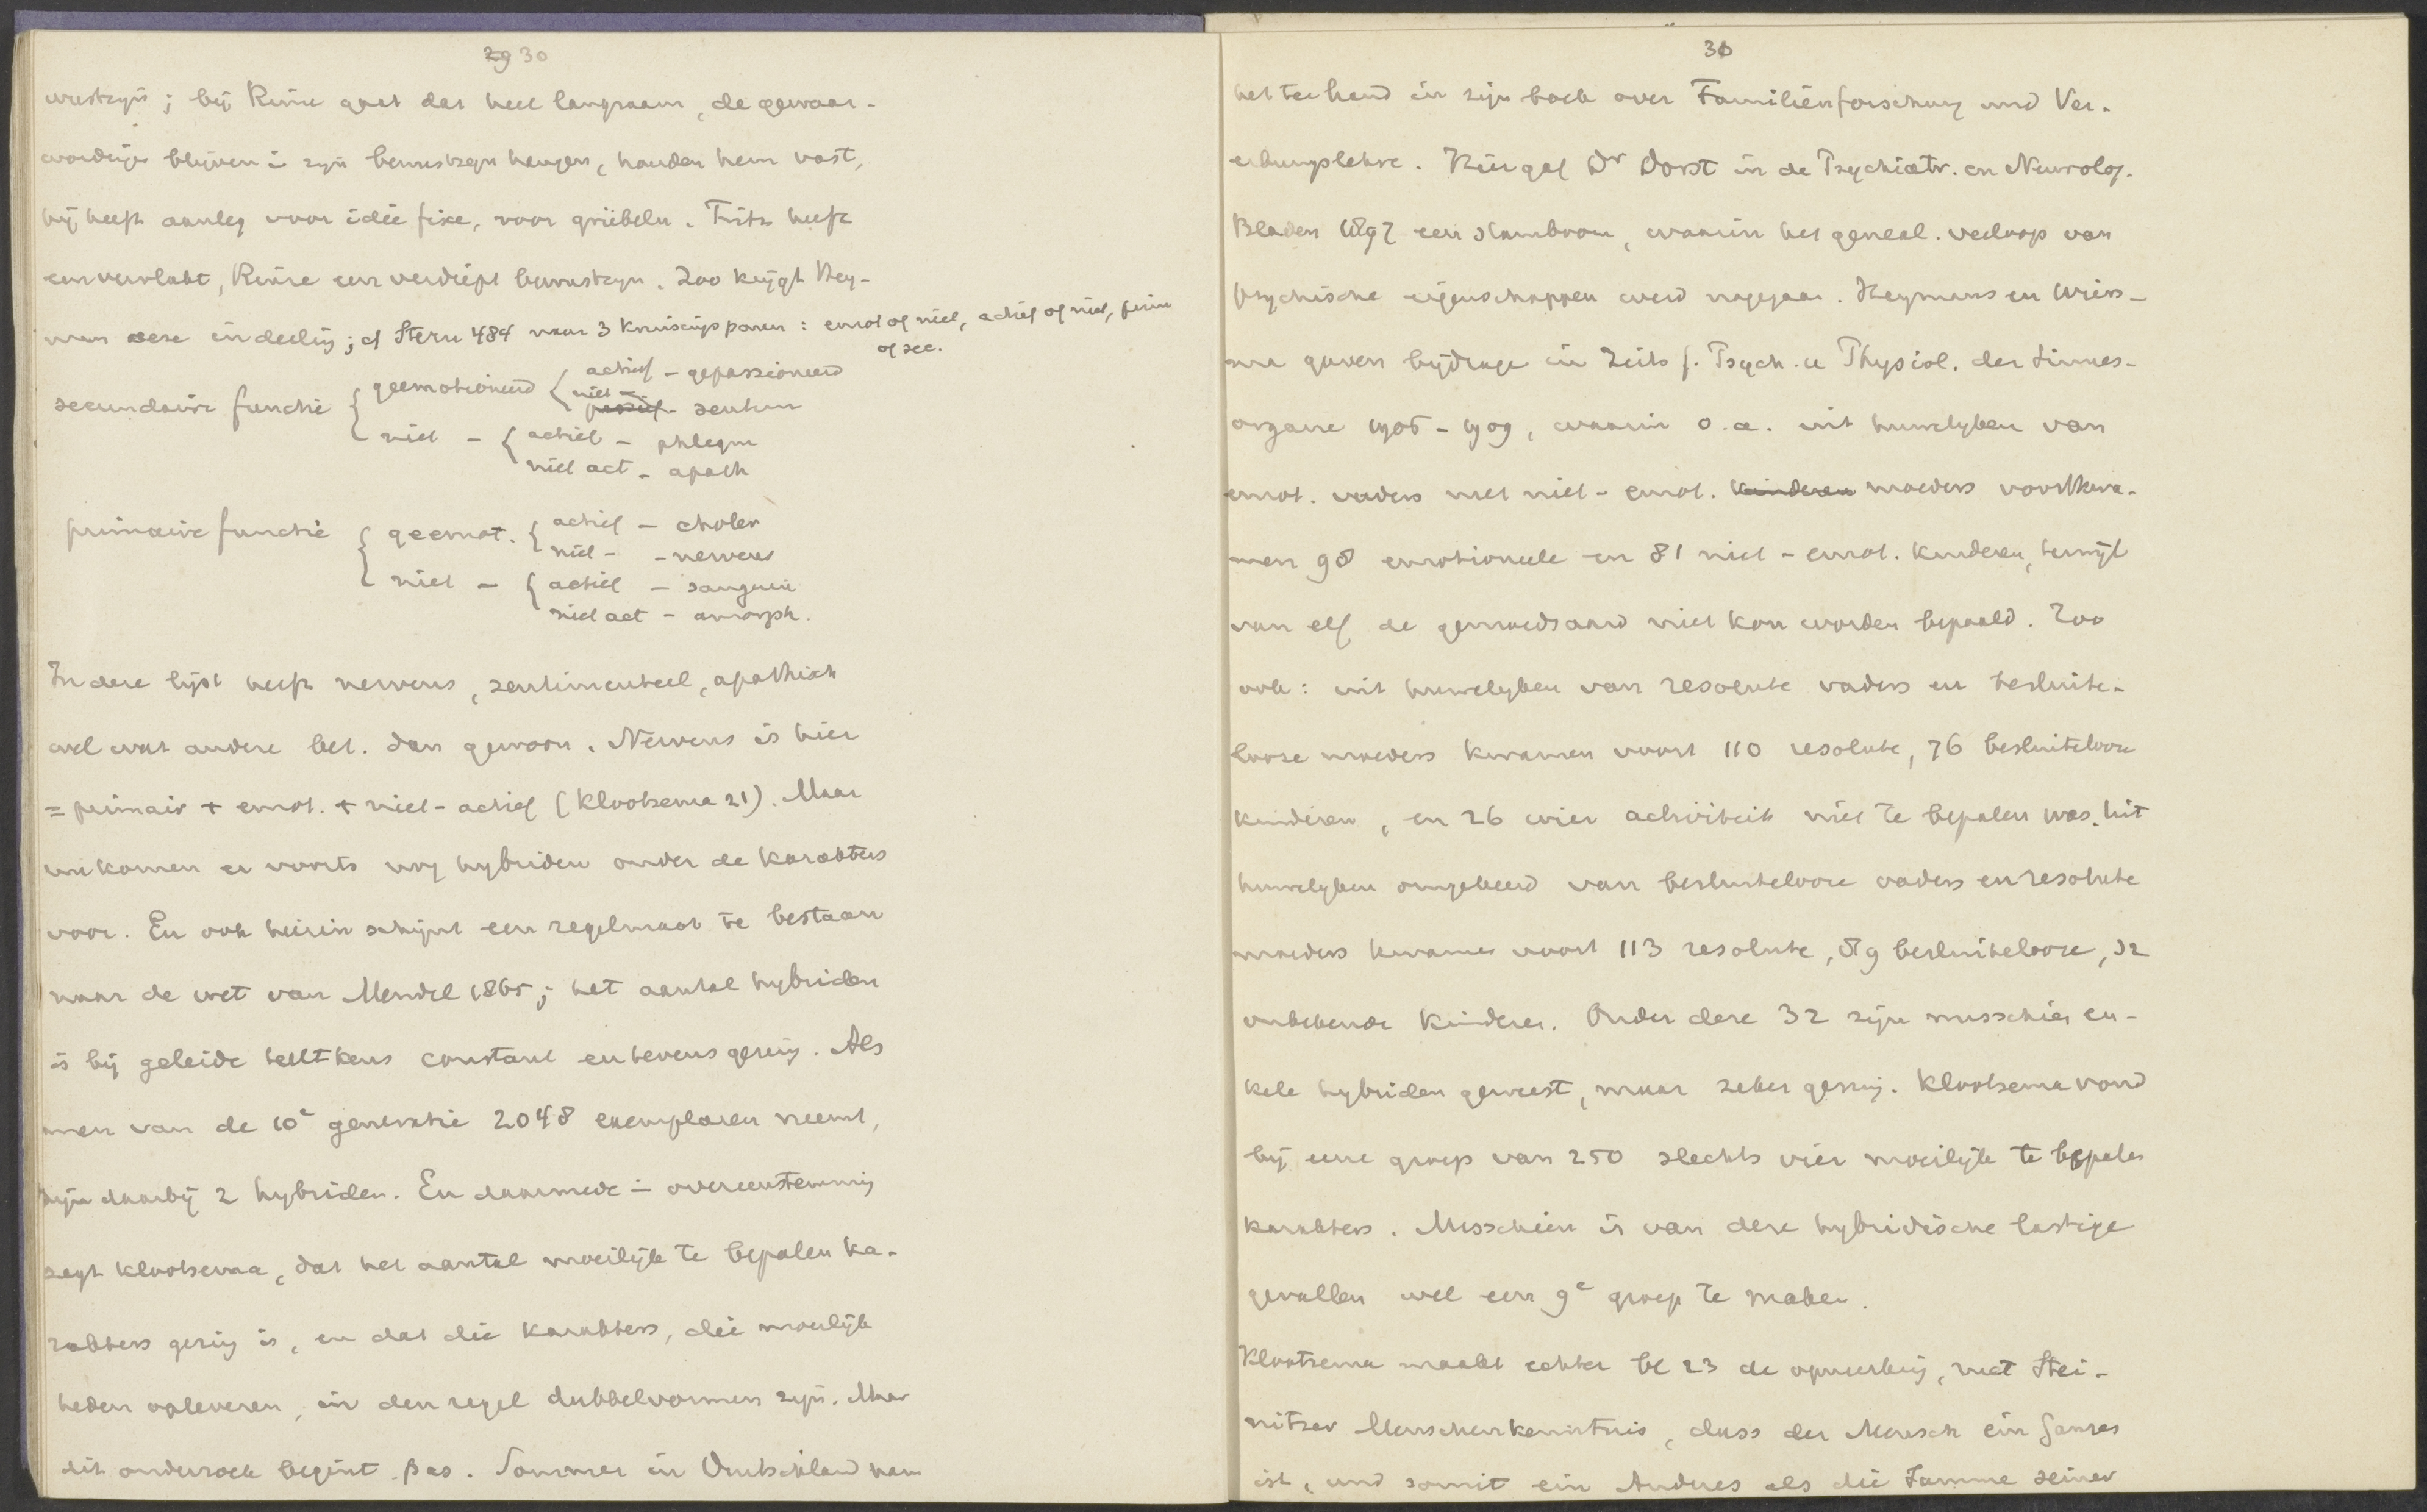 29 30
wustzijn; bij Reine gaat dat heel langzaam, de gewaar-
wordingen blijven in zijn bewustzijn hangen, houden hem vast,
hij heeft aanleg voor idée fixe, voor grübeln. Fritz heeft
een vervlakt, Reine een verdiept bewustzijn. Zoo krijgt Hey-
mans deze indeeling; cf Stern 484 naar 3 kruisingsparen: emot of niet, actief of niet, prim
of sec.
secundaire functie { geemotioneerd { actief – gepassioneerd
niet – passief – sentim
niet – { actief – phlegm
niet act – apath
primaire functie { geemot. { actief – choler
niet – – nerveus
niet – { actief – sanguin
niet act – amorph.
In deze lijst heeft nerveus, sentimenteel, apathisch
wel wat andere bet. dan gewoon. Nerveus is hier
= primair + emot. + niet-actief (Klootsema 21). Maar
nu komen er voorts nog hybriden onder de karakters
voor. En ook hierin schijnt een regelmaat te bestaan
naar de wet van Mendel 1865; het aantal hybriden
is bij geleide teeltkeus constant en tevens gering. Als
men van de 10e generatie 2048 exemplaren neemt,
zijn daarbij 2 hybriden. En daarmede in overeenstemming
zegt Klootsema, dat het aantal moeilijk te bepalen ka-
rakters gering is, en dat die karakters, die moeilijk
heden opleveren, in den regel dubbelvormen zijn. Maar
dit onderzoek begint pas. Sommer in Duitschland nam
31
het ter hand in zijn boek over Familienforschung und Ver-
erbungslehre. Hier gaf Dr Dorst in de Psychiatr. en Neurolog.
Bladen 1897 een stamboom, waarin het geneal. verloop van
psychische eigenschappen werd nagegaan. Heymans en Wiers-
ma gaven bijdrage in Zeits f. Psych. u Physiol. der Sinnes-
organe 1906-1909, waarin o.a. uit huwelijken van
emot. vaders met niet-emot. kinderen moeders voortkwa-
men 98 emotioneele en 81 niet-emot. kinderen, terwijl
van elf de gemoedsaard niet kon worden bepaald. Zoo
ook: uit huwelijken van resolute vaders en besluite-
looze moeders kwamen voort 110 resolute, 76 besluitelooze
kinderen, en 26 wier activiteit niet te bepalen was. Uit
huwelijken omgekeerd van besluitelooze vaders en resolute
moeders kwamen voort 113 resolute, 59 besluitelooze, 32
onbekende kinderen. Onder deze 32 zijn misschien en-
kele hybriden geweest, maar zeker gering. Klootsema vond
bij eene groep van 250 slechts vier moeilijk te bepalen
karakters. Misschien is van deze hybridische lastige
gevallen wel een 9e groep te maken.
Klootsema maakt echter bl 23 de opmerking, met Stei-
nitzer Menschenkenntnis, dass der Mensch ein Ganzes
ist, und somit ein Anderes als die Summe seiner